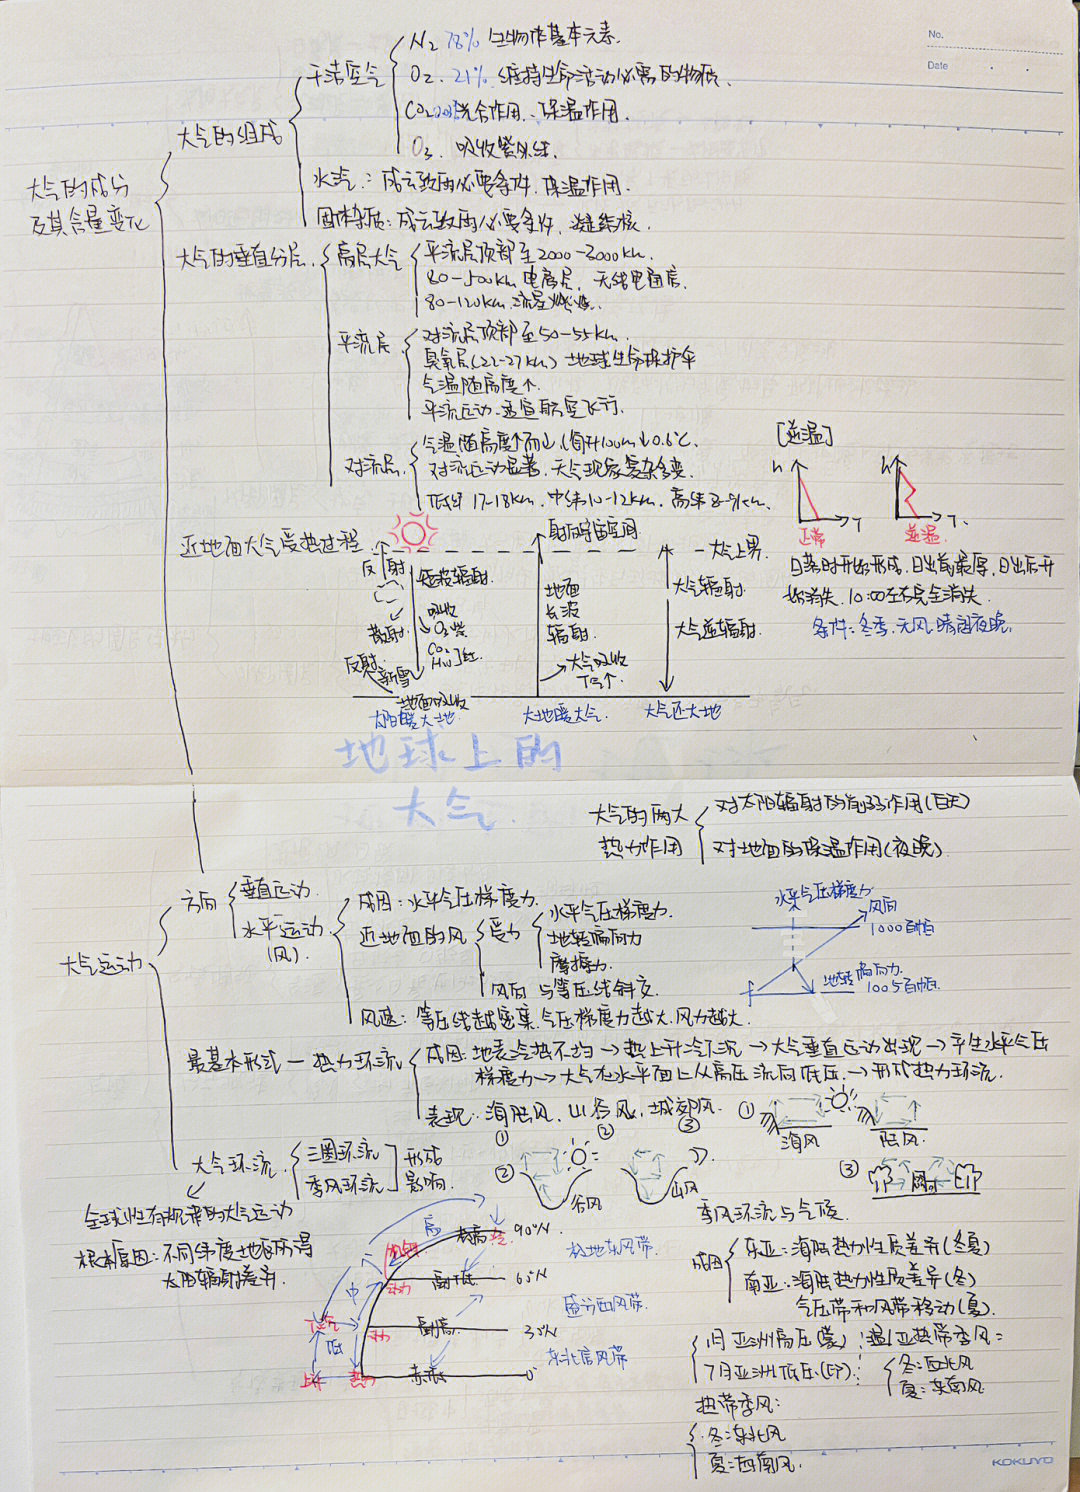 No.
Date
N2 78% 生物体基本元素.
干洁空气
O2. 21% 维持生命活动必需的物质.
CO2 光合作用. 保温作用.
大气的组成
O3. 吸收紫外线.
大气的成分
及其含量变化
水汽: 成云致雨必要条件. 保温作用.
固体杂质: 成云致雨必要条件. 凝结核.
大气的垂直分层.
高层大气
平流层顶部至2000-3000km.
80-500km 电离层, 无线电通信.
80-120km. 流星燃烧.
平流层.
对流层顶部至50-55km.
臭氧层(22-27km) 地球生命保护伞
气温随高度↑.
平流运动.适宜航空飞行.
对流层.
气温随高度↑而↓(每升100m↓0.6℃.
对流运动显著. 天气现象复杂多变.
低纬17-18km. 中纬10-12km. 高纬8-9km.
[逆温]
h
T
正常
h
T.
逆温
日落时开始形成, 日出前最厚, 日出后开
始消失. 10:00左右完全消失.
条件: 冬季. 无风. 晴朗夜晚.
近地面大气受热过程
射向宇宙空间
大气上界
反射
短波辐射.
散射.
吸收
O3紫
CO2
H2O]红.
反射
新雪
地面吸收
太阳暖大地.
地面
长波
辐射.
大气吸收
T气↑.
大地暖大气.
大气辐射.
大气逆辐射.
大气还大地
地球上的
大气.
大气的两大
热力作用
对太阳辐射的削弱作用(白天)
对地面的保温作用(夜晚).
大气运动
方向
垂直运动.
水平运动
(风).
成因: 水平气压梯度力.
近地面的风
受力
水平气压梯度力.
地转偏向力
摩擦力.
风向 与等压线斜交.
风速: 等压线越密集.气压梯度力越大.风力越大.
水平气压梯度力.
风向
1000百帕
地转偏向力.
1005百帕.
f
最基本形式 — 热力环流
成因: 地表冷热不均→热上升冷下沉→大气垂直运动出现→产生水平气压
梯度力→大气在水平面上从高压流向低压.→形成热力环流.
表现: 海陆风. 山谷风. 城郊风.
① ② ③
①
海风
陆风.
②
谷风
山风
③
大气环流.
三圈环流
季风环流
形成
影响.
全球性有规律的大气运动
根本原因: 不同纬度地区所得
太阳辐射差异.
高
中
低
极高
90°N
副低
65N
副高
35N
赤低
0°
动力
热力
上升
极地东风带.
盛行西风带.
东北信风带
季风环流与气候.
成因
东亚: 海陆热力性质差异(冬夏)
南亚: 海陆热力性质差异(冬)
气压带和风带移动(夏).
1月亚洲高压(蒙)
7月亚洲低压(印).
温/亚热带季风:
冬: 西北风
夏: 东南风
热带季风:
冬: 东北风
夏: 西南风.
KOKUYO